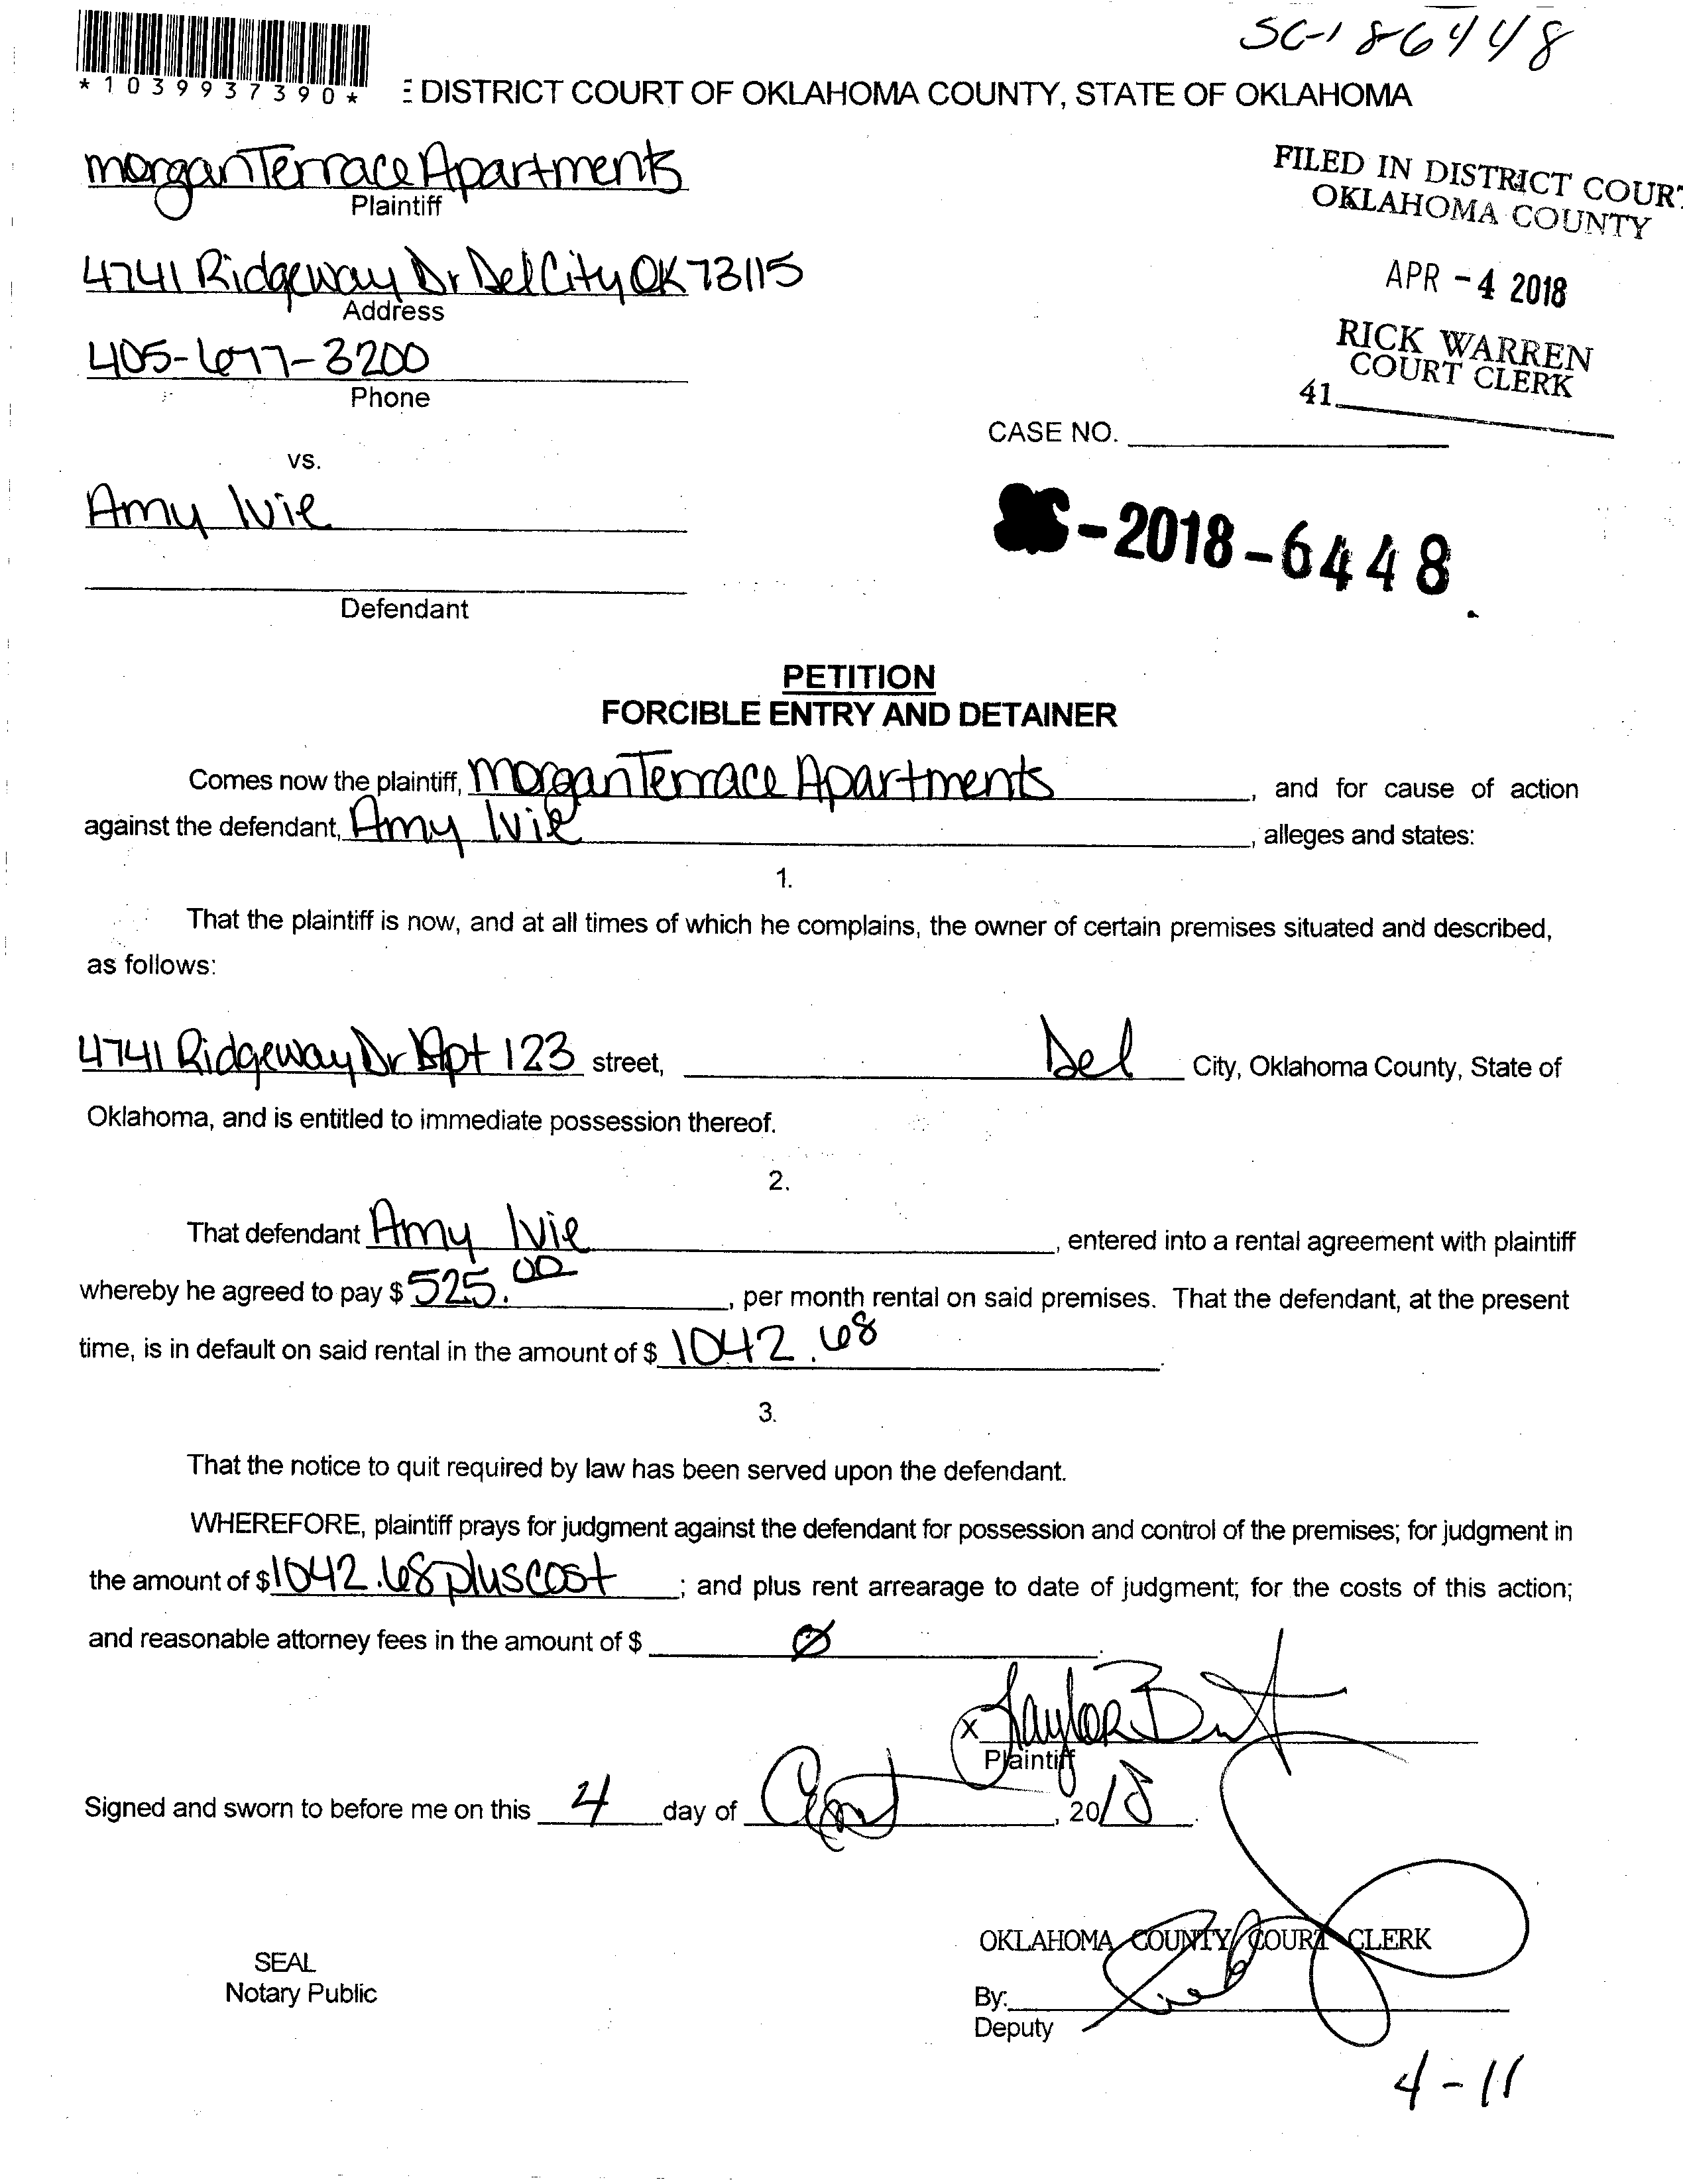 SC-18-6448
*1039937390*
E DISTRICT COURT OF OKLAHOMA COUNTY, STATE OF OKLAHOMA
morgan Terrace Apartments
Plaintiff
FILED IN DISTRICT COURT
OKLAHOMA COUNTY
4741 Ridgeway Dr Del City OK 73115
Address
APR -4 2018
405-677-3200
Phone
RICK WARREN
COURT CLERK
41
CASE NO.
vs.
Amy Ivie
-2018-6448
Defendant
PETITION
FORCIBLE ENTRY AND DETAINER
Comes now the plaintiff, morgan Terrace Apartments, and for cause of action
against the defendant, Amy Ivie, alleges and states:
1.
That the plaintiff is now, and at all times of which he complains, the owner of certain premises situated and described,
as follows:
4741 Ridgeway Dr Apt 123 street, Del City, Oklahoma County, State of
Oklahoma, and is entitled to immediate possession thereof.
2.
That defendant Amy Ivie, entered into a rental agreement with plaintiff
whereby he agreed to pay $ 525.00, per month rental on said premises. That the defendant, at the present
time, is in default on said rental in the amount of $ 1042.68.
3.
That the notice to quit required by law has been served upon the defendant.
WHEREFORE, plaintiff prays for judgment against the defendant for possession and control of the premises; for judgment in
the amount of $ 1042.68 plus cost; and plus rent arrearage to date of judgment; for the costs of this action;
and reasonable attorney fees in the amount of $ Ø.
X Taylor
Plaintiff
Signed and sworn to before me on this 4 day of , 2018.
OKLAHOMA COUNTY COURT CLERK
SEAL
Notary Public
By:
Deputy
4-11